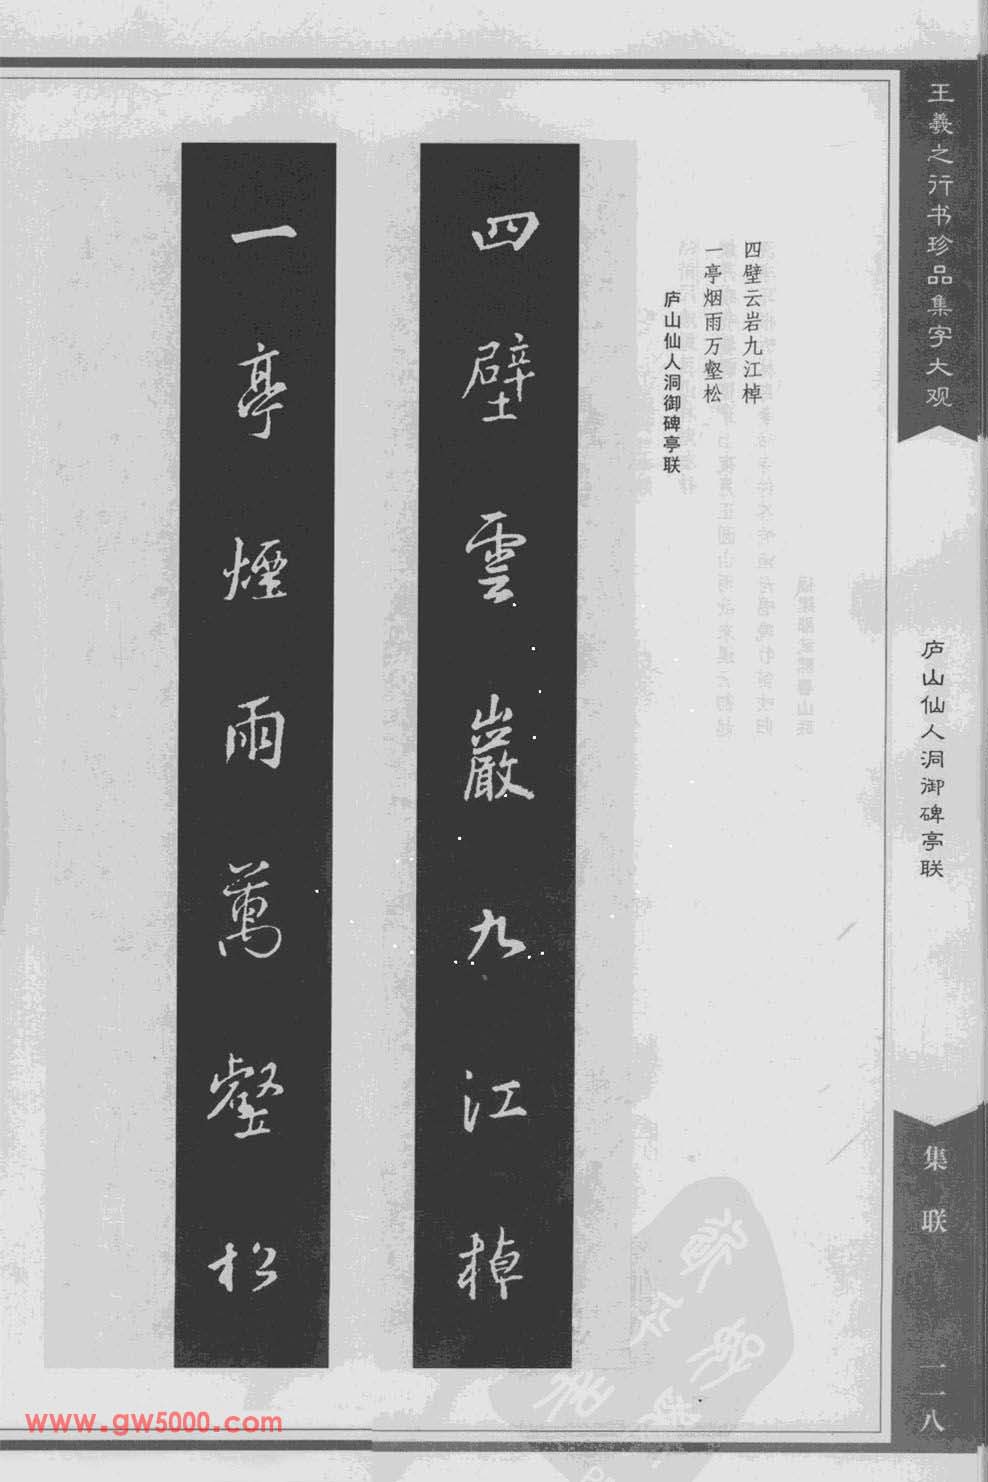 王羲之行书珍品集字大观
庐山仙人洞御碑亭联
集联
一一八
四壁云岩九江棹
一亭烟雨万壑松
庐山仙人洞御碑亭联
四壁雲巖九江棹
一亭煙雨萬壑松
www.gw5000.com